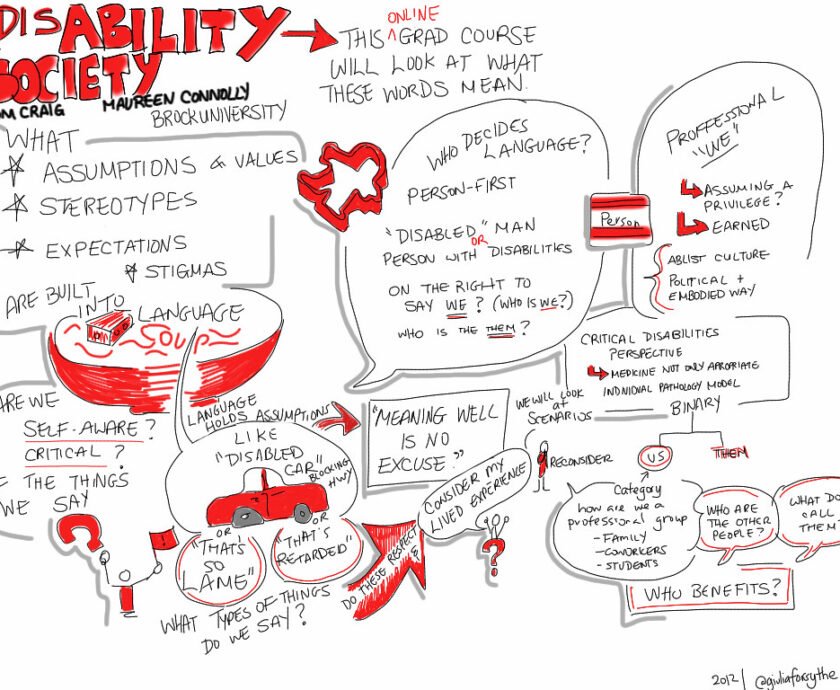 DISABILITY
SOCIETY
CRAIG
MAUREEN CONNOLLY
BROCKUNIVERSITY
ONLINE
THIS ^ GRAD COURSE
WILL LOOK AT WHAT
THESE WORDS MEAN.
WHAT
ASSUMPTIONS & VALUES
STEREOTYPES
EXPECTATIONS
STIGMAS
ARE BUILT
INTO
LANGUAGE
SOUP
ARE WE
SELF-AWARE?
CRITICAL?
THE THINGS
WE SAY
LANGUAGE
HOLDS ASSUMPTIONS
LIKE
"DISABLED
CAR"
BLOCKING
HWY
OR
"THAT'S
SO
LAME"
OR
"THAT'S
RETARDED"
WHAT TYPES OF THINGS
DO WE SAY?
DO THESE RESPECT
"MEANING WELL
IS NO
EXCUSE."
CONSIDER MY
LIVED EXPERIENCE
?
WHO DECIDES
LANGUAGE?
PERSON-FIRST
"DISABLED" MAN
OR
PERSON WITH DISABILITIES
ON THE RIGHT TO
SAY WE? (WHO IS WE?)
WHO IS THE THEM?
Person
PROFFESSIONAL
"WE"
ASSUMING A
PRIVILEGE?
EARNED
ABLIST CULTURE
POLITICAL +
EMBODIED WAY
CRITICAL DISABILITIES
PERSPECTIVE
MEDICINE NOT ONLY APROPRIATE
INDIVIDUAL PATHOLOGY MODEL
BINARY
US
THEM
WE WILL LOOK
at
SCENARIOS
RECONSIDER
Category
how are we a
professional group
- FAMILY
- COWORKERS
- STUDENTS
WHO ARE
THE OTHER
PEOPLE?
WHAT DO
CALL
THEM
WHO BENEFITS?
2012 | @giuliaforsythe